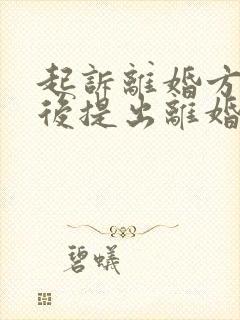 起訴離婚方
後提出離婚
碧蟻